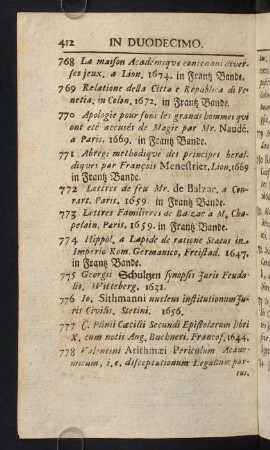 412 IN DUODECIMO.
768 La maison Academique contenant diver-
ses jeux. a Lion. 1674. in Frantz Bande.
769 Relatione della Citta e Republica di Ve-
netia. in Colon. 1672. in Frantz Bande.
770 Apologie pour fous les grands hommes qui
ont eté accusés de Magie par Mr. Naudé.
a Paris. 1669. in Frantz Bande.
771 Abregé methodique des principes heral-
diques par François Menestrier. Lion, 1669
in Frantz Bande.
772 Lettres de feu Mr. de Balzac. a Con-
rart. Paris. 1659. in Frantz Bande.
773 Lettres Familieres de Ba zac a M. Cha-
pelain. Paris. 1659. in Frantz Bande.
774 Hippol. a Lapide de ratione Status in
Imperio Rom. Germanico, Freistad. 1647.
in Frantz Bande.
775 Georgii Schultzen synopsis Juris Feuda-
lis. Witteberg. 1631.
776 Jo. Sithmanni nucleus institutionum Ju-
ris Civilis. Stetini. 1656.
777 C. Plinii Cæcilii Secundi Epistolarum libri
X. cum notis Aug. Buchneri. Francof. 1644.
778 Valentini Arithmæi Periculum Acade-
micum, i.e. disceptationum Legalium par-
tus.